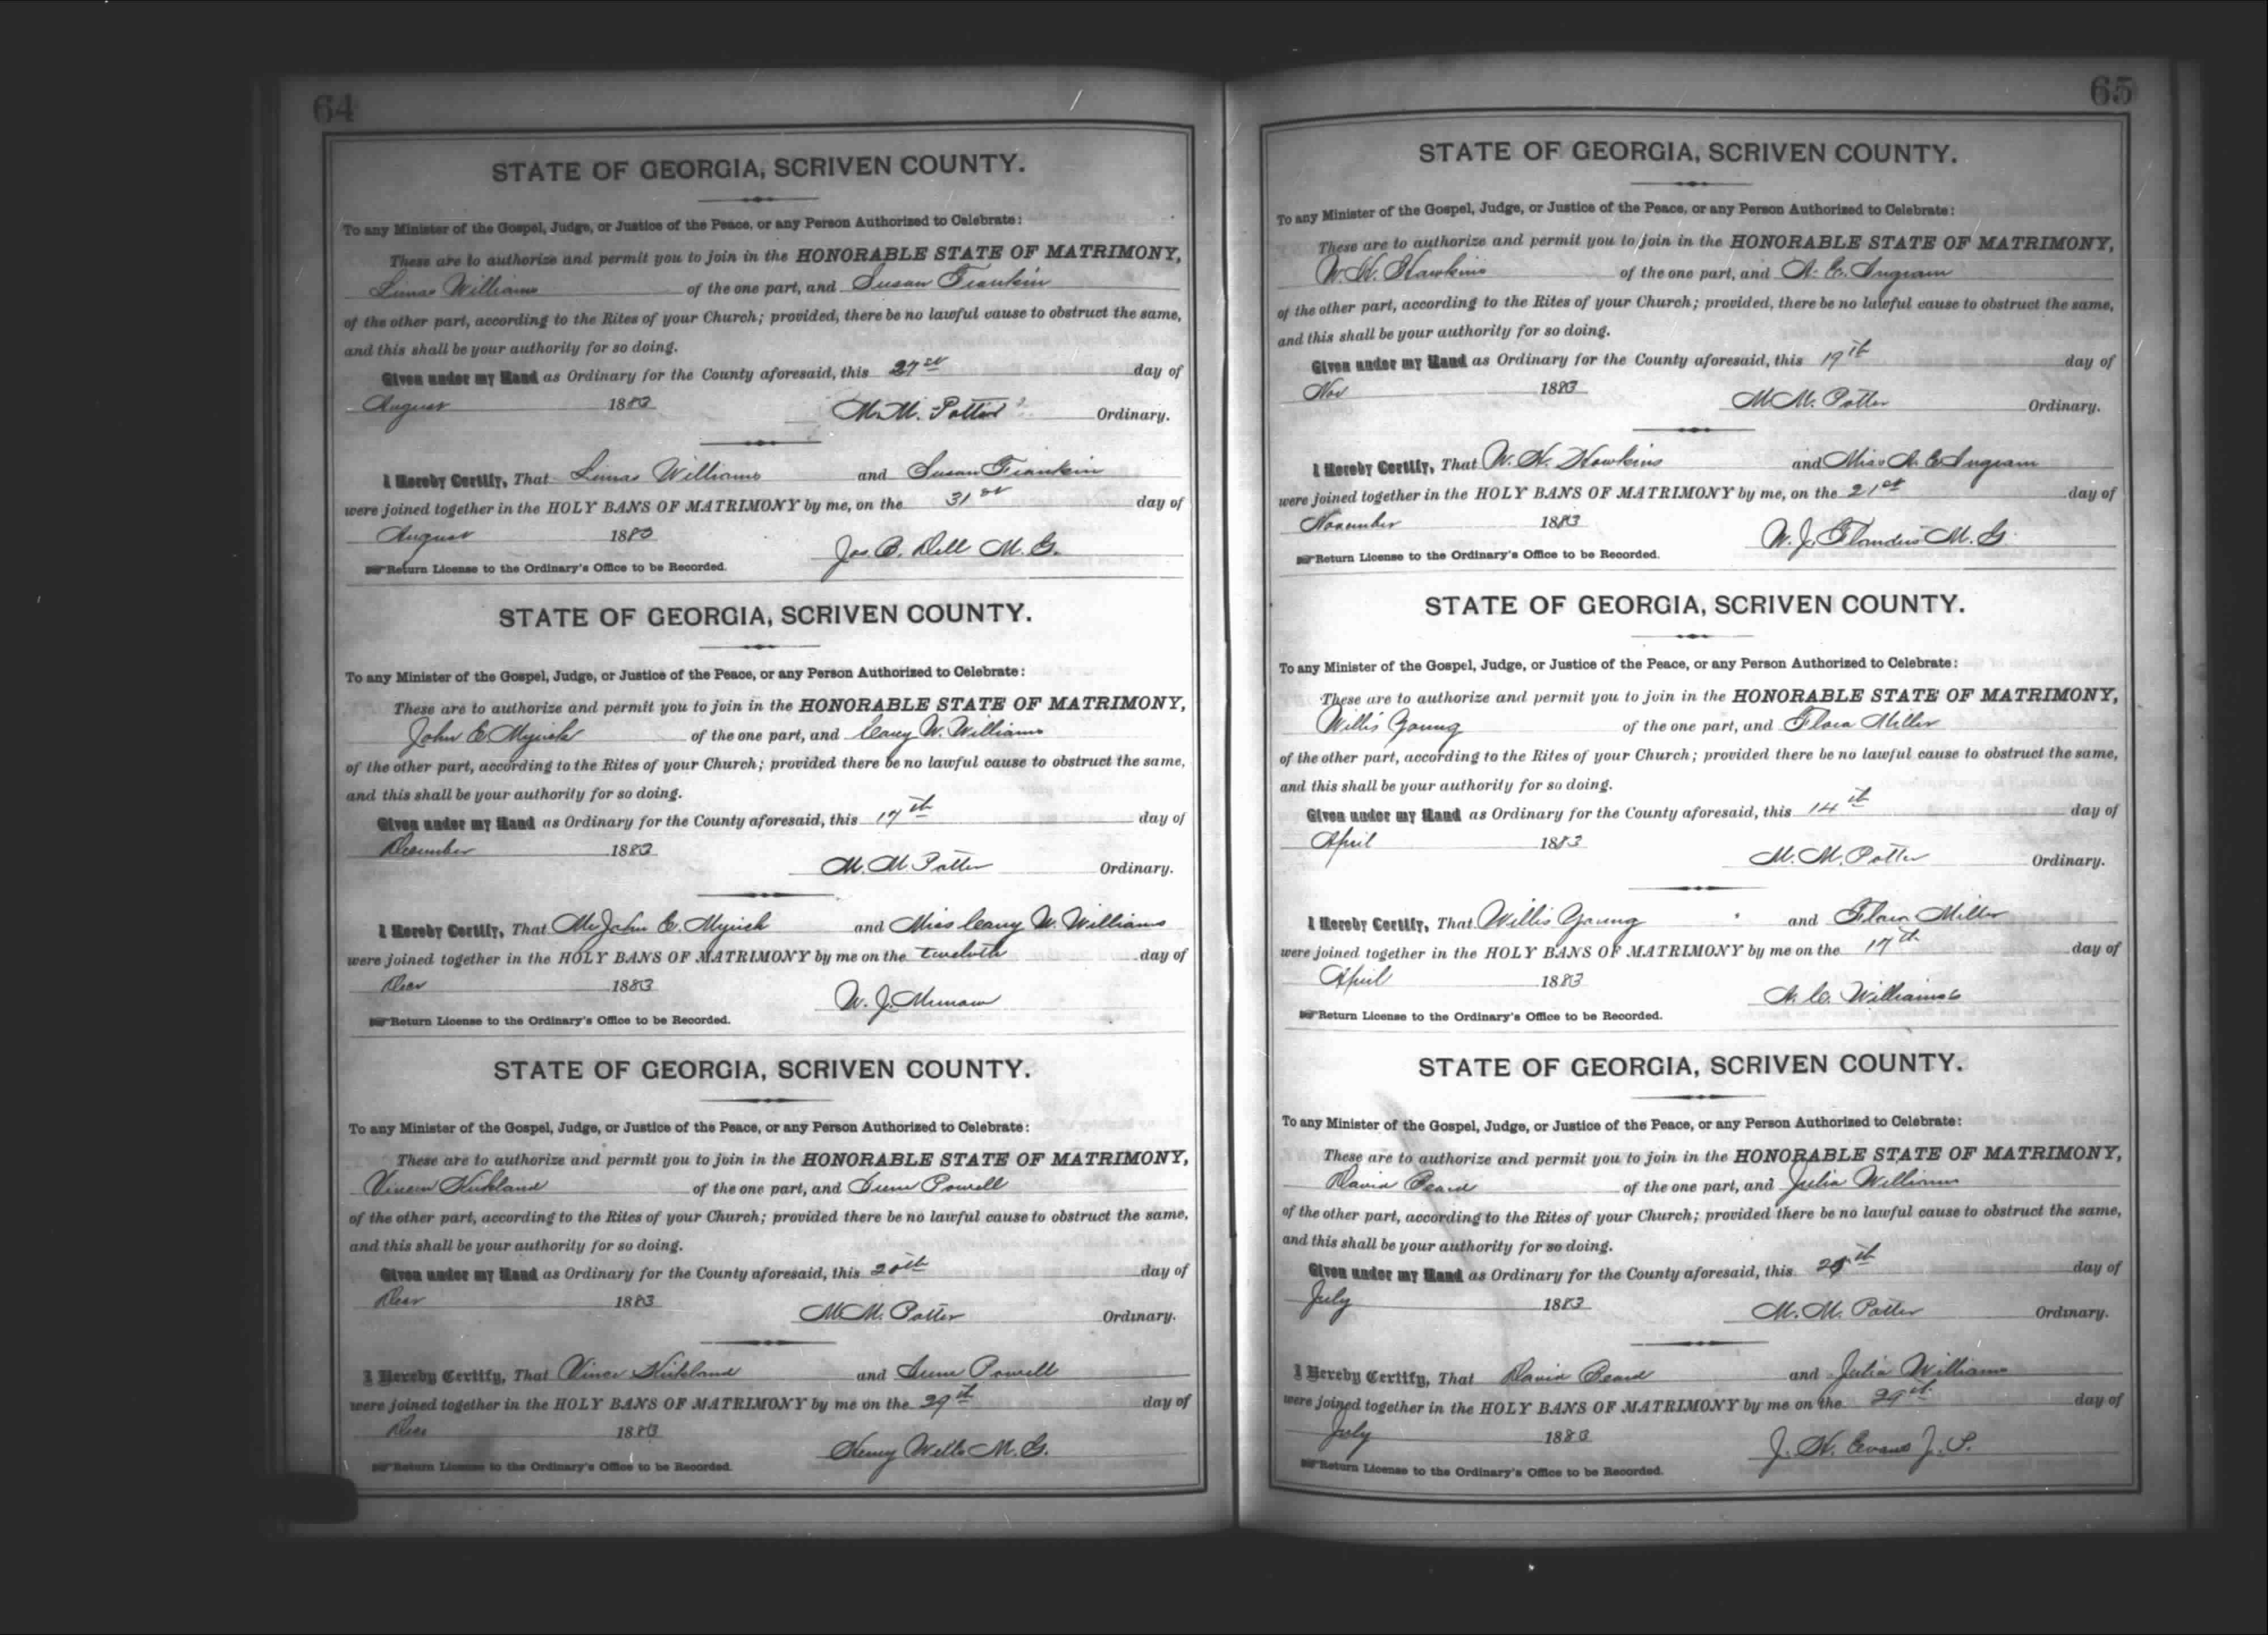 64
STATE OF GEORGIA, SCRIVEN COUNTY.
To any Minister of the Gospel, Judge, or Justice of the Peace, or any Person Authorized to Celebrate:
These are to authorize and permit you to join in the HONORABLE STATE OF MATRIMONY,
Limas Williams of the one part, and Susan Frankin
of the other part, according to the Rites of your Church; provided, there be no lawful cause to obstruct the same,
and this shall be your authority for so doing.
Given under my Hand as Ordinary for the County aforesaid, this 27 day of
August 1883 M. M. Potter Ordinary.
I Hereby Certify, That Limas Williams and Susan Frankin
were joined together in the HOLY BANS OF MATRIMONY by me, on the 31st day of
August 1883 Jas B. Dell M. G.
Return License to the Ordinary's Office to be Recorded.
STATE OF GEORGIA, SCRIVEN COUNTY.
To any Minister of the Gospel, Judge, or Justice of the Peace, or any Person Authorized to Celebrate:
These are to authorize and permit you to join in the HONORABLE STATE OF MATRIMONY,
John E. Myrick of the one part, and W. Williams
of the other part, according to the Rites of your Church; provided there be no lawful cause to obstruct the same,
and this shall be your authority for so doing.
Given under my Hand as Ordinary for the County aforesaid, this 17th day of
December 1883 M. M. Potter Ordinary.
I Hereby Certify, That Mr John E. Myrick and Miss W. Williams
were joined together in the HOLY BANS OF MATRIMONY by me on the twelvth day of
Decr 1883 W. J.
Return License to the Ordinary's Office to be Recorded.
STATE OF GEORGIA, SCRIVEN COUNTY.
To any Minister of the Gospel, Judge, or Justice of the Peace, or any Person Authorized to Celebrate:
These are to authorize and permit you to join in the HONORABLE STATE OF MATRIMONY,
Kirkland of the one part, and Powell
of the other part, according to the Rites of your Church; provided there be no lawful cause to obstruct the same,
and this shall be your authority for so doing.
Given under my Hand as Ordinary for the County aforesaid, this 20th day of
Decr 1883 M. M. Potter Ordinary.
I Hereby Certify, That Vince Kirkland and Powell
were joined together in the HOLY BANS OF MATRIMONY by me on the 29th day of
Decr 1883 Henry Wells M. G.
Return License to the Ordinary's Office to be Recorded.
65
STATE OF GEORGIA, SCRIVEN COUNTY.
To any Minister of the Gospel, Judge, or Justice of the Peace, or any Person Authorized to Celebrate:
These are to authorize and permit you to join in the HONORABLE STATE OF MATRIMONY,
W. H. Hawkins of the one part, and A. E. Ingram
of the other part, according to the Rites of your Church; provided, there be no lawful cause to obstruct the same,
and this shall be your authority for so doing.
Given under my Hand as Ordinary for the County aforesaid, this 19th day of
Nov 1883 M M. Potter Ordinary.
I Hereby Certify, That W. H. Hawkins and Miss A. E. Ingram
were joined together in the HOLY BANS OF MATRIMONY by me, on the 21st day of
November 1883 W. J. Flanders M. G.
Return License to the Ordinary's Office to be Recorded.
STATE OF GEORGIA, SCRIVEN COUNTY.
To any Minister of the Gospel, Judge, or Justice of the Peace, or any Person Authorized to Celebrate:
These are to authorize and permit you to join in the HONORABLE STATE OF MATRIMONY,
Willis Young of the one part, and Flora Miller
of the other part, according to the Rites of your Church; provided there be no lawful cause to obstruct the same,
and this shall be your authority for so doing.
Given under my Hand as Ordinary for the County aforesaid, this 14th day of
April 1883 M. M. Potter Ordinary.
I Hereby Certify, That Willis Young and Flora Miller
were joined together in the HOLY BANS OF MATRIMONY by me on the 17th day of
April 1883 A. C. Williams
Return License to the Ordinary's Office to be Recorded.
STATE OF GEORGIA, SCRIVEN COUNTY.
To any Minister of the Gospel, Judge, or Justice of the Peace, or any Person Authorized to Celebrate:
These are to authorize and permit you to join in the HONORABLE STATE OF MATRIMONY,
David Beard of the one part, and Julia Williams
of the other part, according to the Rites of your Church; provided there be no lawful cause to obstruct the same,
and this shall be your authority for so doing.
Given under my Hand as Ordinary for the County aforesaid, this day of
July 1883 M. M. Potter Ordinary.
I Hereby Certify, That David Beard and Julia Williams
were joined together in the HOLY BANS OF MATRIMONY by me on the 29th day of
July 1883 J. H. Evans J. P.
Return License to the Ordinary's Office to be Recorded.